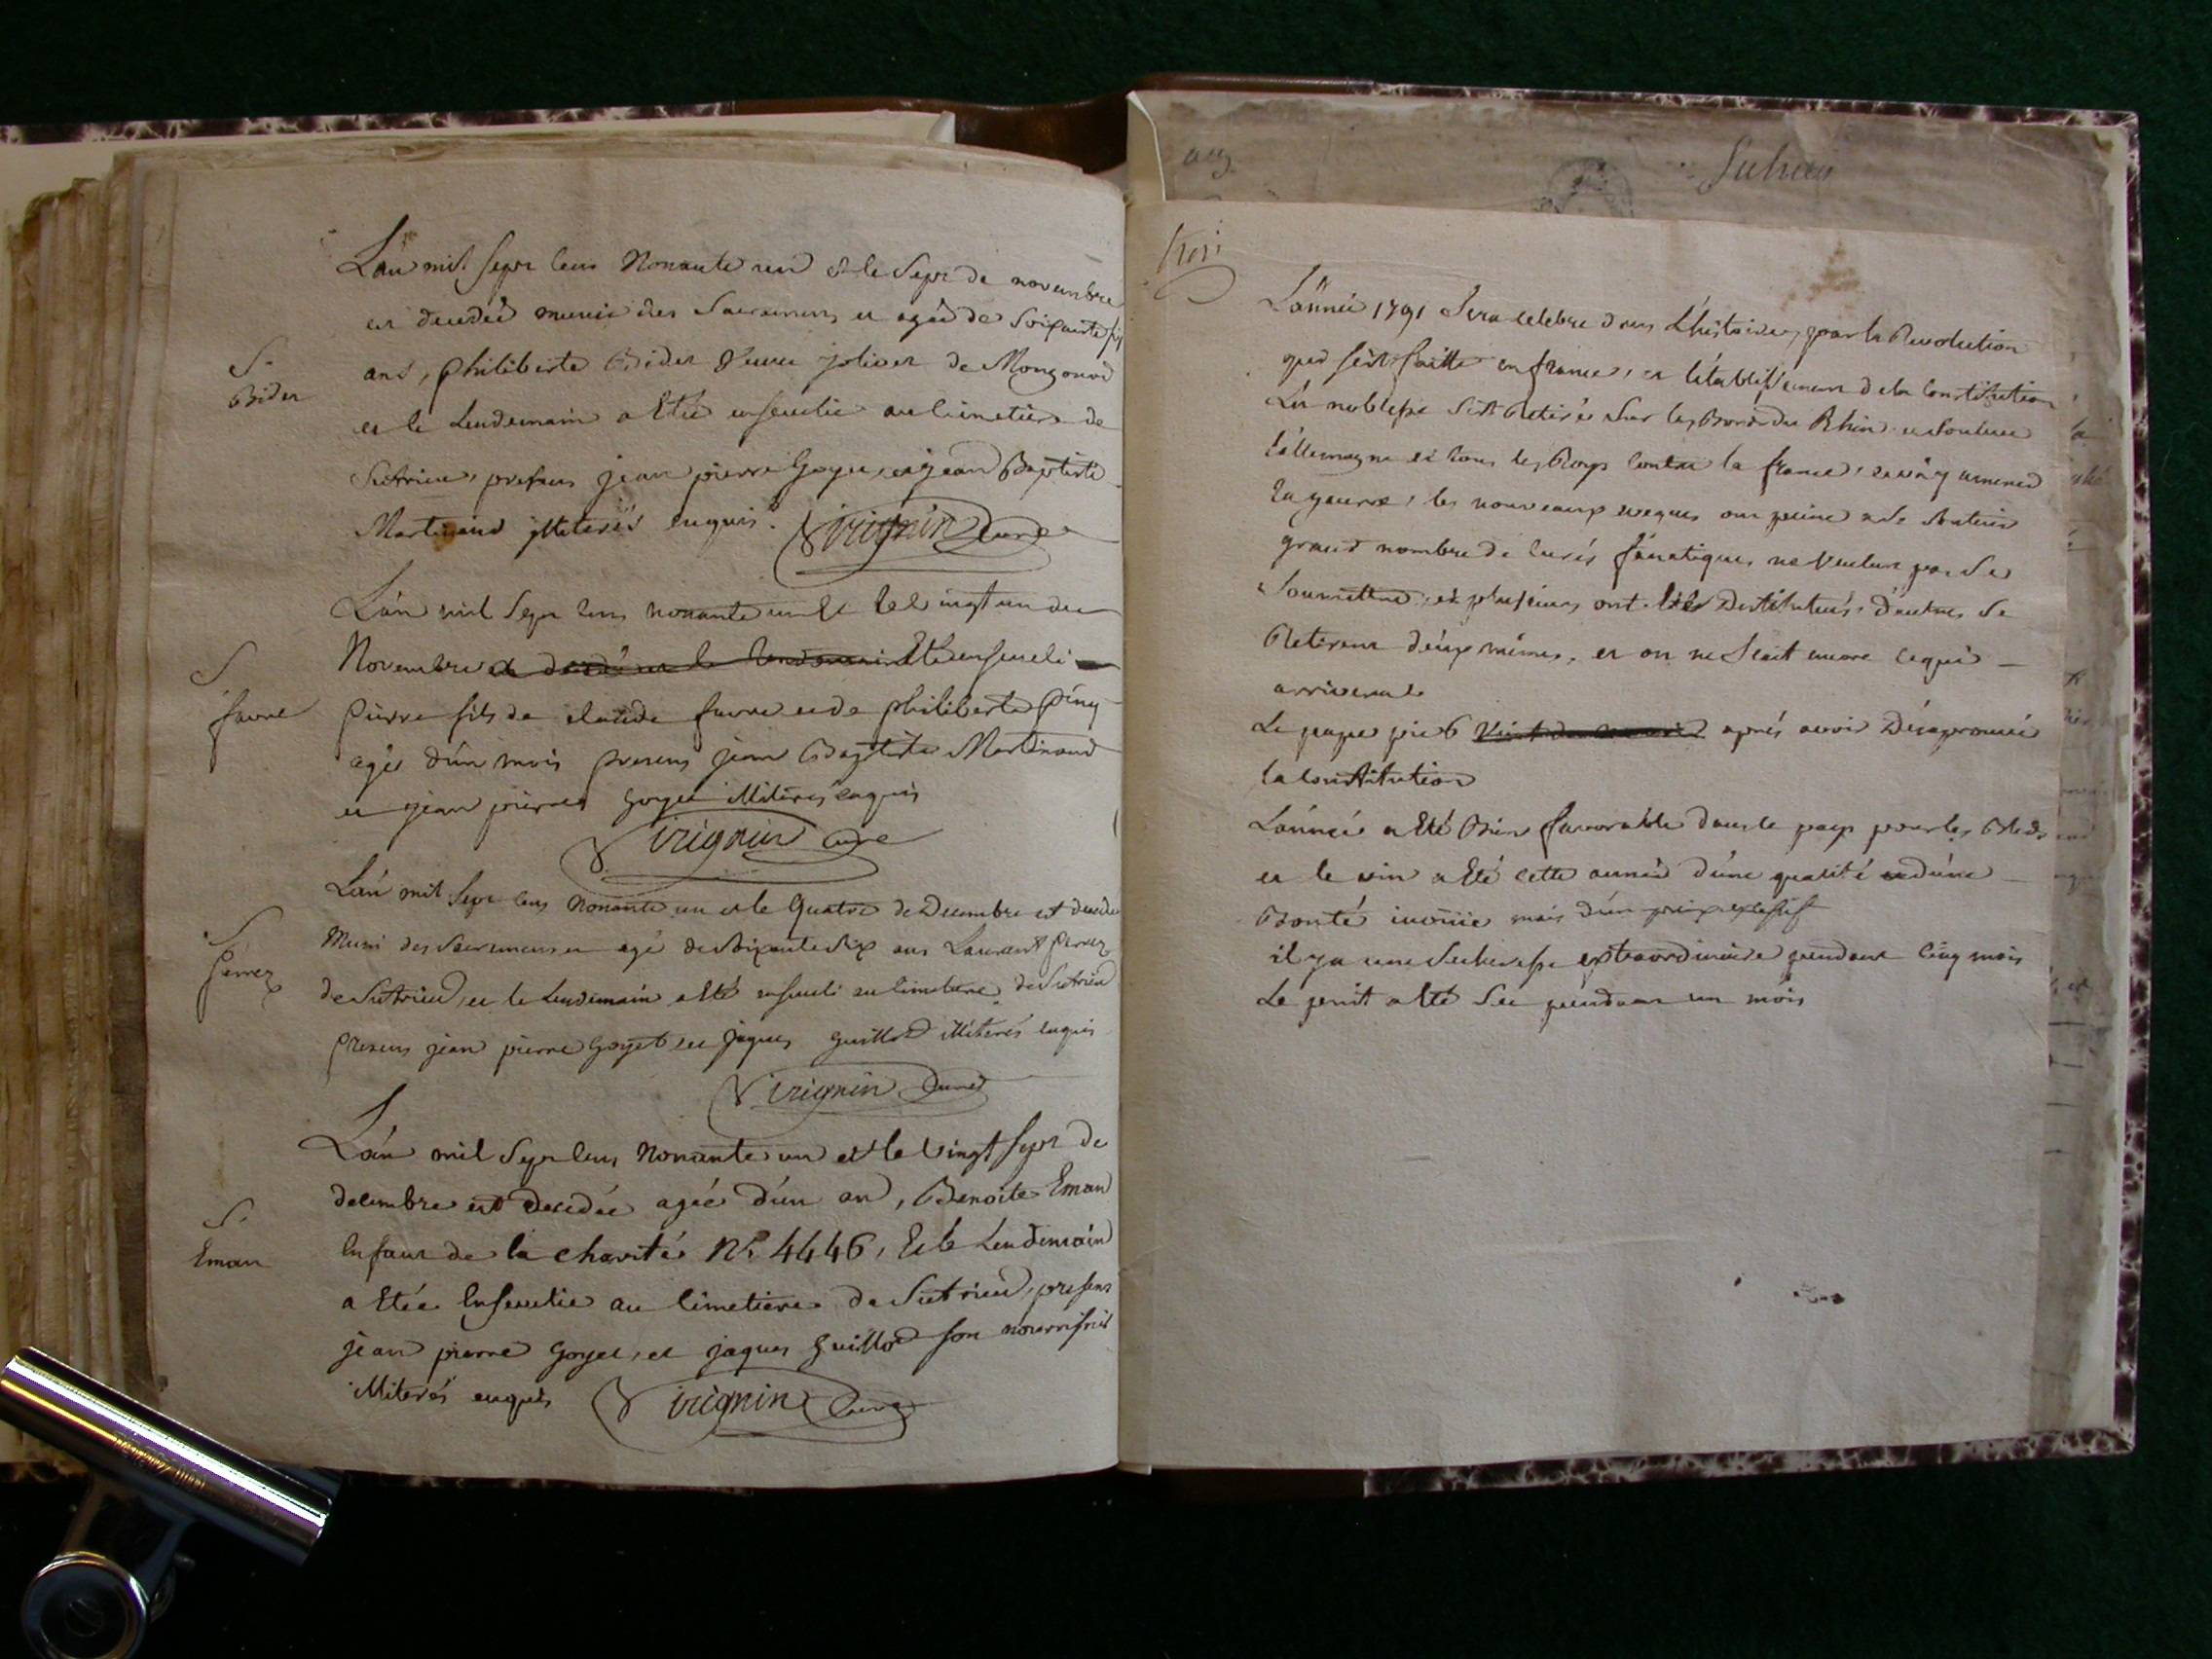 L'an mil sept cens nonante un et le sept de novembre
est decedée munie des sacremens et agée de soixante six
ans, philiberte Bider veuve joliver de Mongonod
et le lendemain a été ensevelie au cimetiere de
Sutrieu, presens jean pierre Goyet, et jean Baptiste
Martinand illiterés enquis. Virignin Curé
S. Bider
L'an mil sept cens nonante un et le vingt un de
Novembre est decedé et le lendemain Eté enseveli
Pierre fils de claude favre et de philiberte
agé d'un mois presens jean Baptiste Martinand
et jean pierre Goyet illiterés enquis
Virignin Curé
S favre
L'an mil sept cens nonante un et le Quatre de Decembre est decedé
Muni des sacremens et agé de soixante six ans Laurent Perrez
de Sutrieu, et le lendemain a été enseveli au cimetiere de Sutrieu
Presens jean pierre Goyet et jaques Guillod illiterés enquis
Virignin Curé
S. Perrez
L'an mil sept cens nonante un et le vingt sept de
decembre est decedée agée d'un an, Benoite Eman
enfant de la charité No. 4446, Et le lendemain
a étée Ensevelie au cimetiere de Sutrieu, presens
jean pierre Goyet, et jaques Guillod son nourrissié
illiterés enquis Virignin Curé
S. Eman
L'année 1791 sera celebre dans L'histoire, pour la Revolution
qui s'est faitte en france, et l'établissement de la constitution
La noblesse s'est retiré sur les Bords du Rhin et souleve
l'allemagne et tous les Roys contre la france, amener
la guerre, les nouveaux eveques ont peine a se soutenir
grand nombre de curés fanatiques ne veulent pas se
soumettre, et plusieurs ont étés destitués, d'autres se
Retirent d'eux mêmes, et on ne sçait encore ce qui
arrivera
Le pape pie 6 vient de mourir aprés avoir désaprouvé
la constitution
L'année a été Bien favorable dans le pays pour les Bleds
et le vin a été cette année d'une qualité et d'une
Bonté inouïe mais d'un prix excessif
il y a une secheresse extraordinaire pendant cinq mois
Le puit a été sec pendant un mois